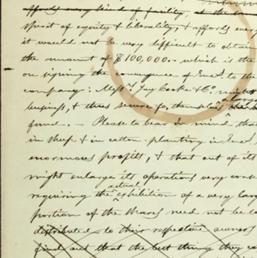 affords every kind of facility
spirit of equity & liberality, & affords every
it would not be very difficult to obtain
the amount of $100,000 - which is the
on signing the conveyance of land to the
company: Messrs Jay Cooke & Co. might
fund. - Please to bear in mind that
in sheep & in cotton planting in
enormous profits, & that out of its
might enlarge its operations very
requiring the actual exhibition of a very large
portion of the shares need not be
distributed to their respective owners
find out that the best thing they